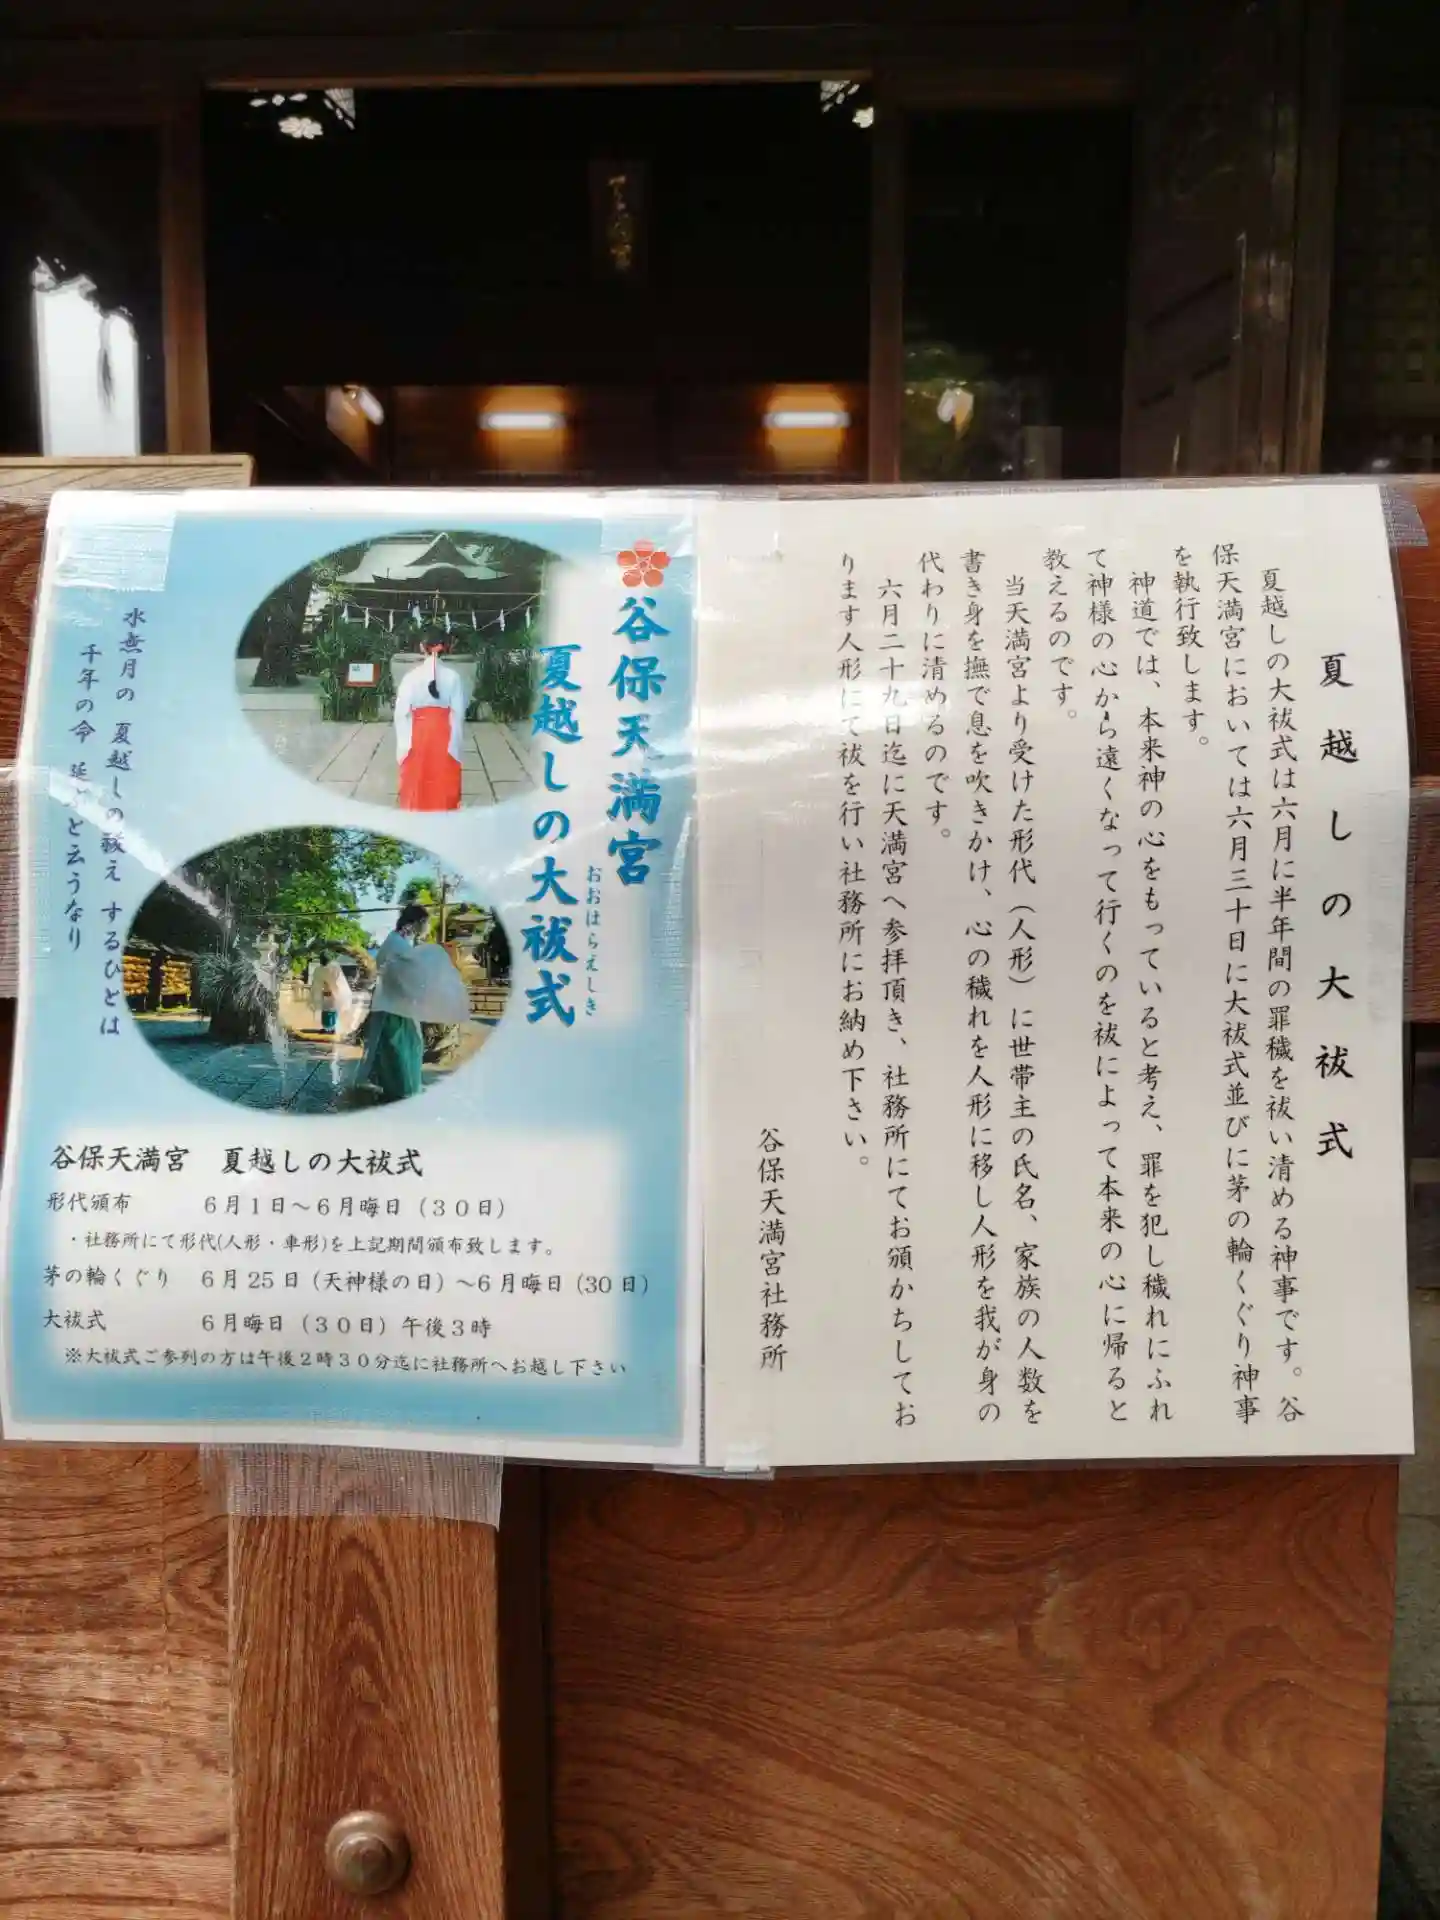 谷保天満宮
夏越しの大祓式
おおはらえしき
水無月の 夏越しの祓え するひとは
千年の命 延ぶと云うなり
谷保天満宮 夏越しの大祓式
形代頒布 6月1日~6月晦日(30日)
・社務所にて形代(人形・車形)を上記期間頒布致します。
茅の輪くぐり 6月25日(天神様の日)~6月晦日(30日)
大祓式 6月晦日(30日)午後3時
※大祓式ご参列の方は午後2時30分迄に社務所へお越し下さい
夏越しの大祓式
夏越しの大祓式は六月に半年間の罪穢を祓い清める神事です。谷
保天満宮においては六月三十日に大祓式並びに茅の輪くぐり神事
を執行致します。
神道では、本来神の心をもっていると考え、罪を犯し穢れにふれ
て神様の心から遠くなって行くのを祓によって本来の心に帰ると
教えるのです。
当天満宮より受けた形代(人形)に世帯主の氏名、家族の人数を
書き身を撫で息を吹きかけ、心の穢れを人形に移し人形を我が身の
代わりに清めるのです。
六月二十九日迄に天満宮へ参拝頂き、社務所にてお頒かちしてお
ります人形にて祓を行い社務所にお納め下さい。
谷保天満宮社務所